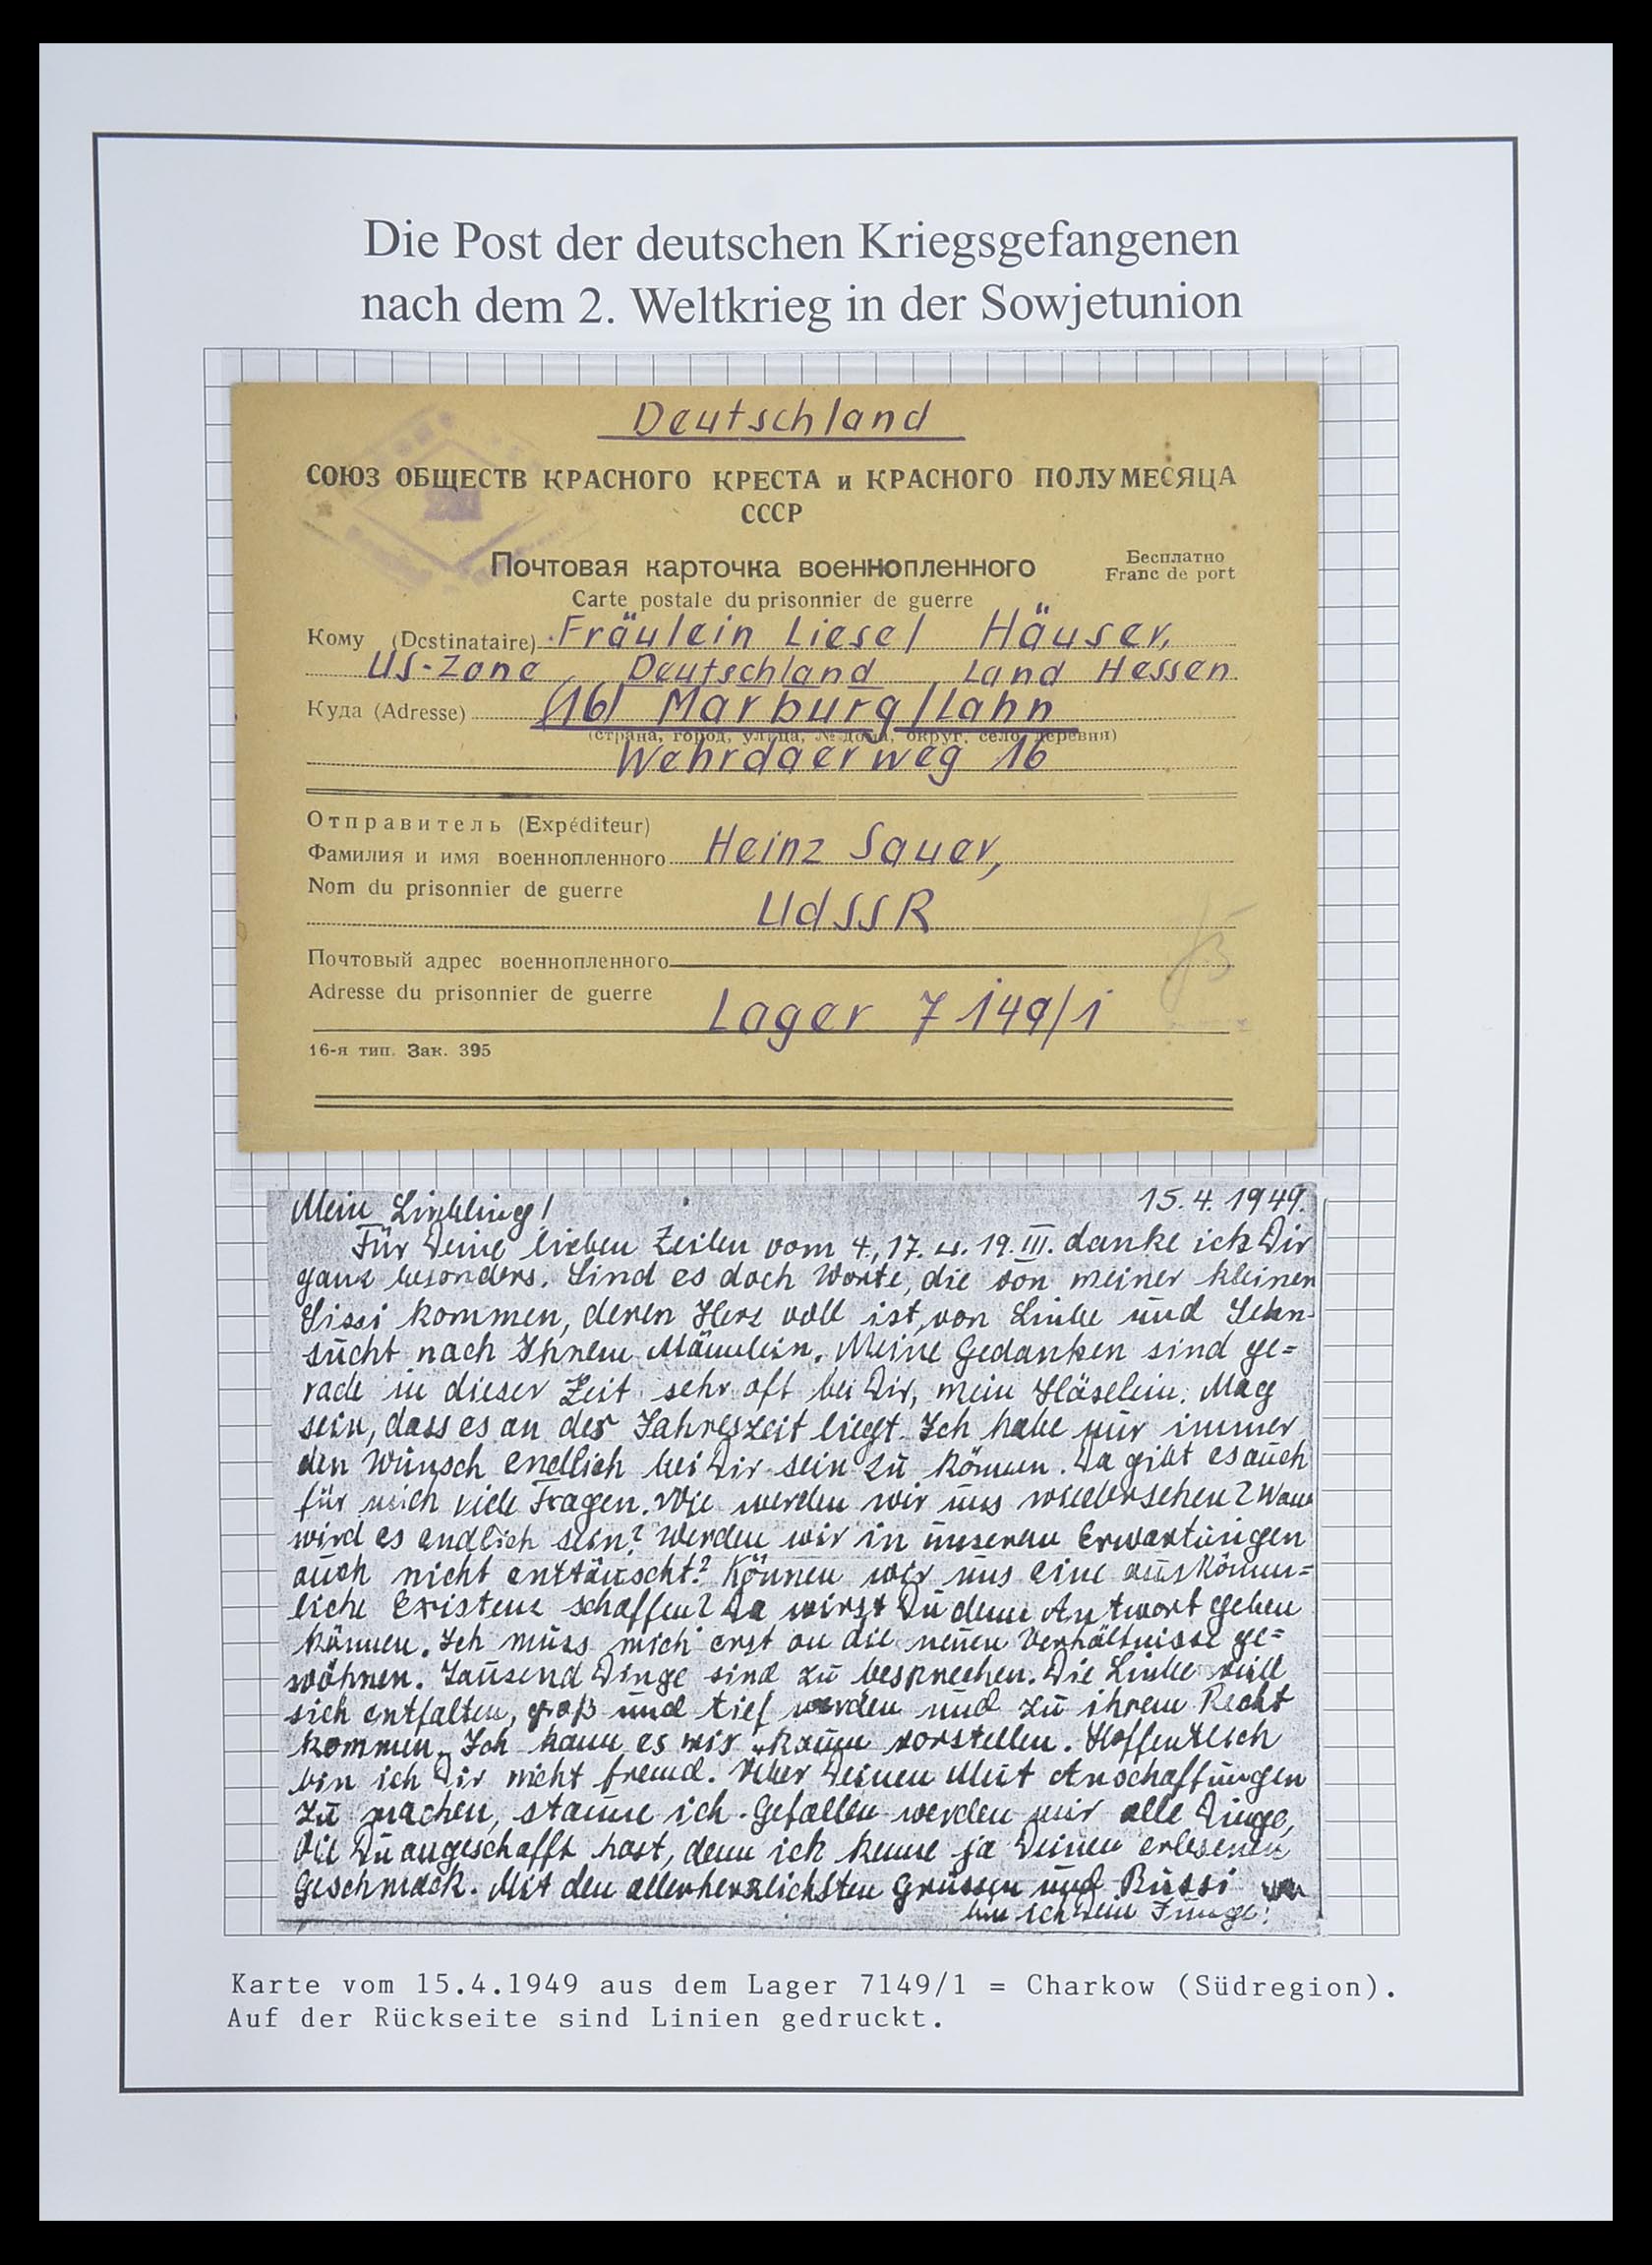 Die Post der deutschen Kriegsgefangenen
nach dem 2. Weltkrieg in der Sowjetunion
Deutschland
СОЮЗ ОБЩЕСТВ КРАСНОГО КРЕСТА и КРАСНОГО ПОЛУМЕСЯЦА
СССР
Почтовая карточка военнопленного
Бесплатно
Franc de port
Carte postale du prisonnier de guerre
Кому (Destinataire) Fräulein Liesel Häuser,
US-Zone, Deutschland, Land Hessen
Куда (Adresse) (16) Marburg/Lahn
(страна, город, улица, № дома, округ, село, деревня)
Wehrdaerweg 16
Отправитель (Expéditeur)
Фамилия и имя военнопленного Heinz Sauer,
Nom du prisonnier de guerre
UdSSR
Почтовый адрес военнопленного
Adresse du prisonnier de guerre
Lager 7149/1
16-я тип. Зак. 395
Mein Liebling! 15.4.1949.
Für Deine lieben Zeilen vom 4., 17. u. 19. III. danke ich Dir
ganz besonders. Sind es doch Worte, die von meiner kleinen
Sissi kommen, deren Herz voll ist, von Liebe und Sehn-
sucht nach Ihrem Männlein. Meine Gedanken sind ge=
rade in dieser Zeit sehr oft bei Dir, mein Häselein. Mag
sein, dass es an der Jahreszeit liegt. Ich habe nur immer
den Wunsch endlich bei Dir sein zu können. Da gibt es auch
für mich viele Fragen. Wie werden wir uns wiedersehen? Wann
wird es endlich sein? Werden wir in unseren Erwartungen
auch nicht enttäuscht? Können wir uns eine auskömm=
liche Existenz schaffen? Da wirst Du denn Antwort geben
können. Ich muss mich erst an die neuen Verhältnisse ge=
wöhnen. Tausend Dinge sind zu besprechen. Die Liebe will
sich entfalten, groß und tief werden und zu ihrem Recht
kommen. Ich kann es mir kaum vorstellen. Hoffentlich
bin ich Dir nicht fremd. Über Deinen Mut Anschaffungen
zu machen, staune ich. Gefallen werden mir alle Dinge,
die Du angeschafft hast, denn ich kenne ja Deinen erlesenen
Geschmack. Mit den allerherzlichsten Grüssen und Bussi
bin ich Dein Junge!
Karte vom 15.4.1949 aus dem Lager 7149/1 = Charkow (Südregion).
Auf der Rückseite sind Linien gedruckt.